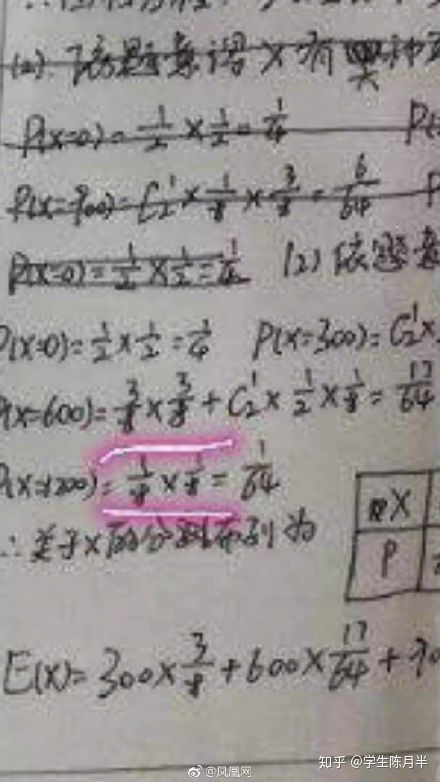 (2) 依题意得 X 有
P(X=0)=1/2×1/2=1/4 P(
P(X=900)=C₂¹×1/8×3/8=6/64 P
P(X=0)=1/2×1/2=1/4 (2) 依题意
P(X=0)=1/2×1/2=1/4 P(X=300)=C₂¹×
P(X=600)=3/8×3/8+C₂¹×1/2×1/8=17/64
P(X=1200)=1/8×1/8=1/64
∴关于X的分布列为
X
P
E(X)=300×3/8+600×17/64+90
知乎 @学生陈月半
@凤凰网